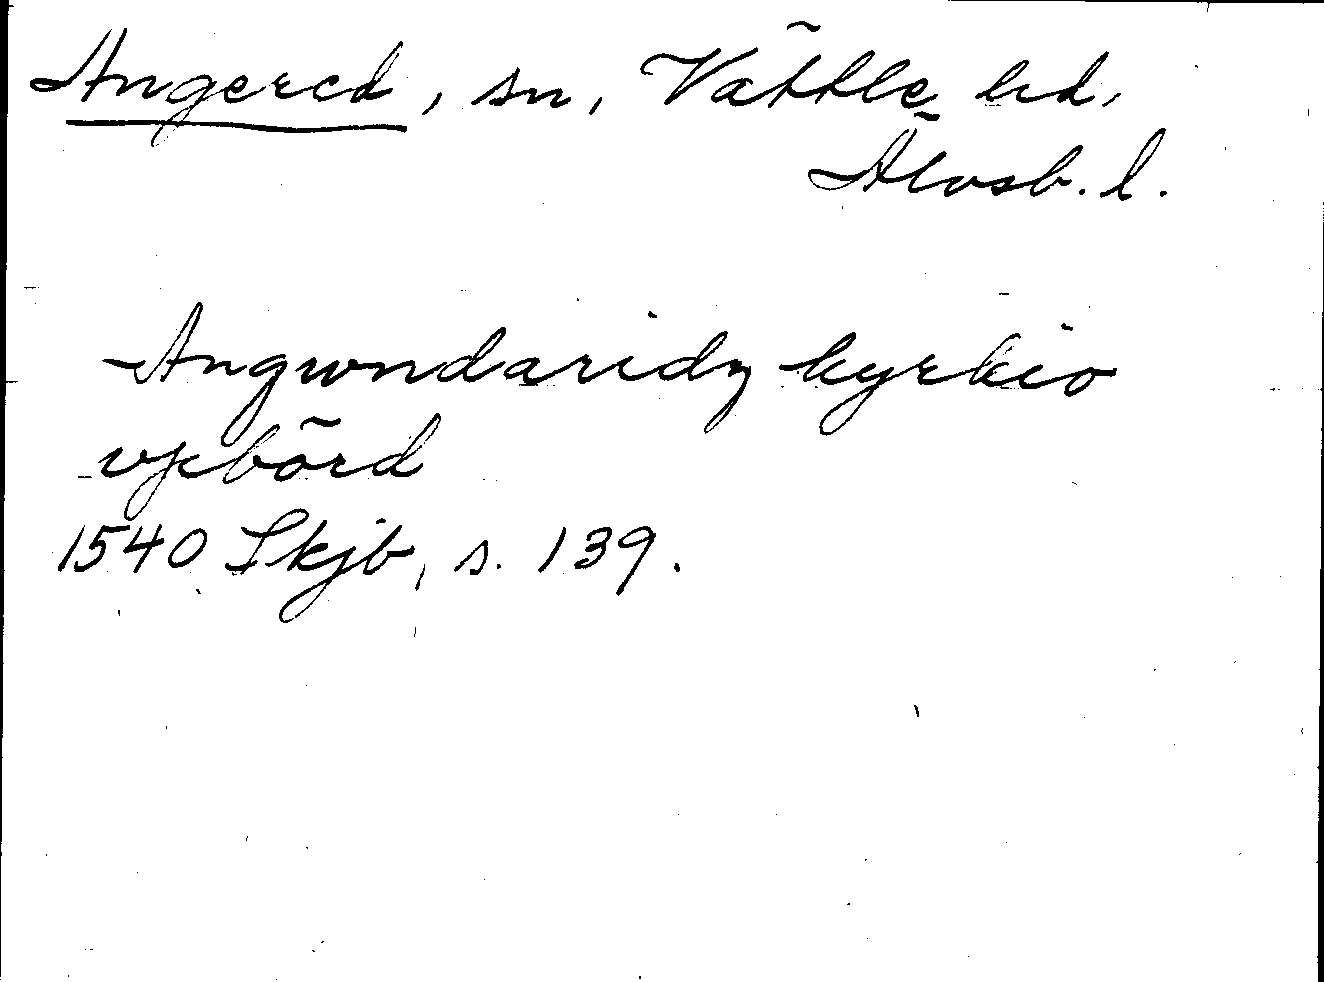 Angered, sn, Vättle hd,
Älvsb. l.
Angwndaridz kyrkio
vpbörd
1540 Skjb, s. 139.